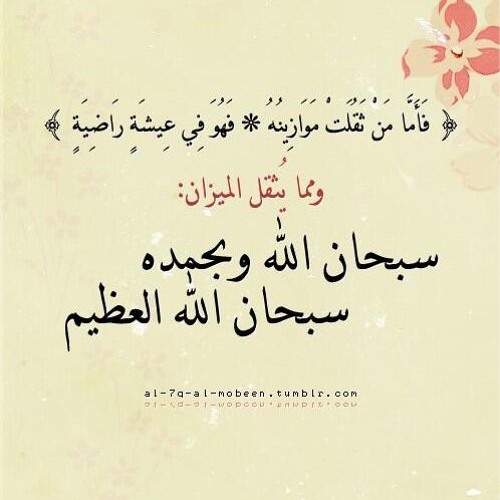 ﴿ فَأَمَّا مَنْ ثَقُلَتْ مَوَازِينُهُ * فَهُوَ فِي عِيشَةٍ رَاضِيَةٍ ﴾
ومما يُثقل الميزان:
سبحان الله وبحمده
سبحان الله العظيم
al-7q-al-mobeen.tumblr.com